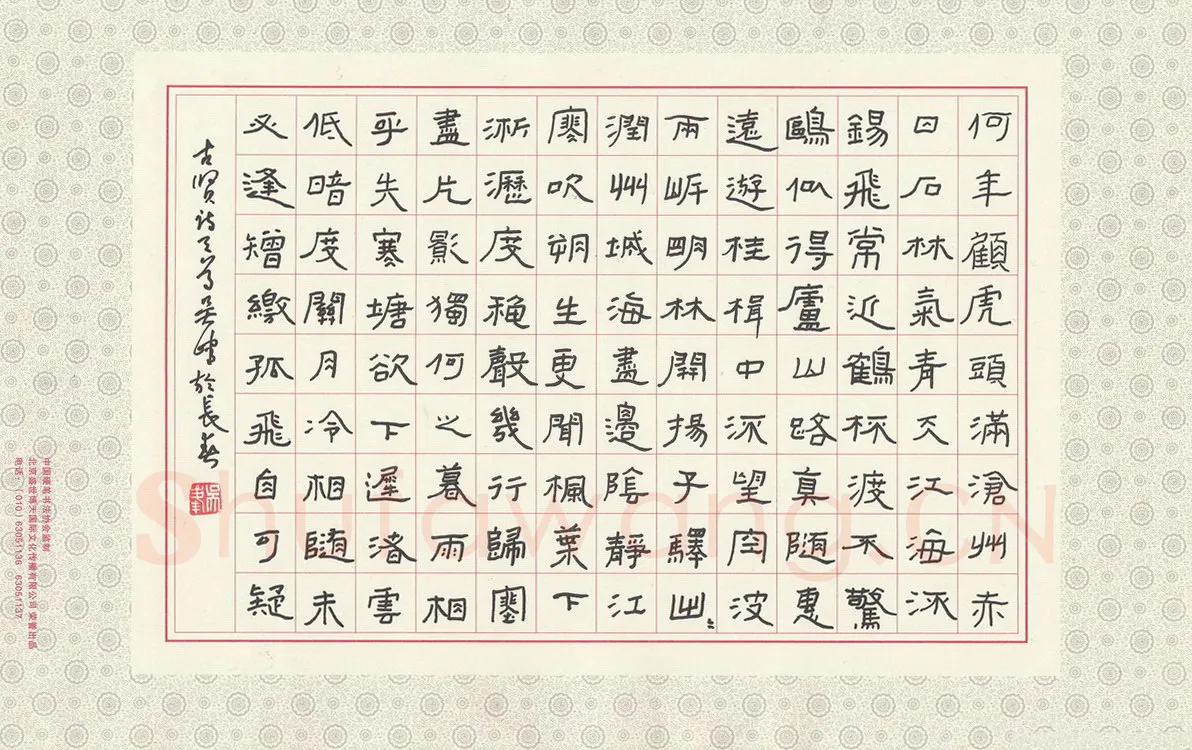 何年顧虎頭滿滄州赤
日石林氣青天江海流
錫飛常近鶴杯渡不驚
鷗似得廬山路真随惠
遠遊桂楫中流望空波
兩岸明林開揚子驛出
潤州城海盡邊陰靜江
寒吹朔生更聞楓葉下
淅瀝度穐聲幾行歸塞
盡片影獨何之暮雨相
乎失寒塘欲下遲渚雲
低暗度關月冷相随未
必逢矰繳孤飛自可疑
古賢詩三首吳峰於長春
中国硬笔书法协会监制
北京盛世博天国际文化传播有限公司 荣誉出品
电话：(010) 63051136 63051137
Shufawang.CN